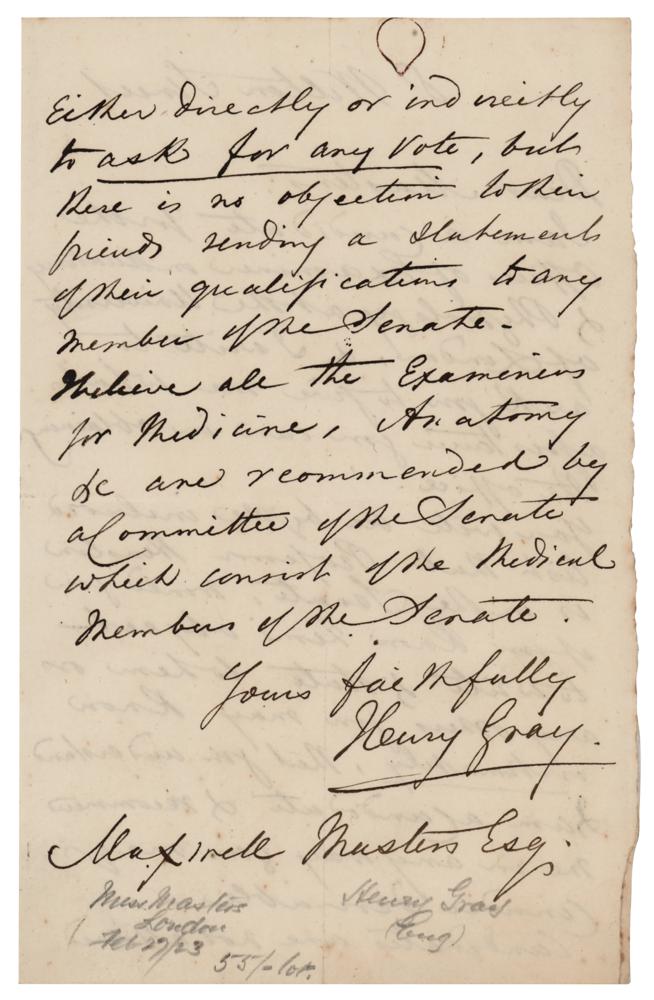 Either directly or indirectly
to ask for any vote, but
there is no objection to their
friends sending a statement
of their qualifications to any
member of the Senate.
I believe all the Examiners
for Medicine, Anatomy
&c are recommended by
a Committee of the Senate
which consist of the Medical
Members of the Senate.
Yours faithfully
Henry Gray.
Maxwell Masters Esq.
Miss Masters
London
Feb 27/23
55/- lot.
Henry Gray
(Eng)